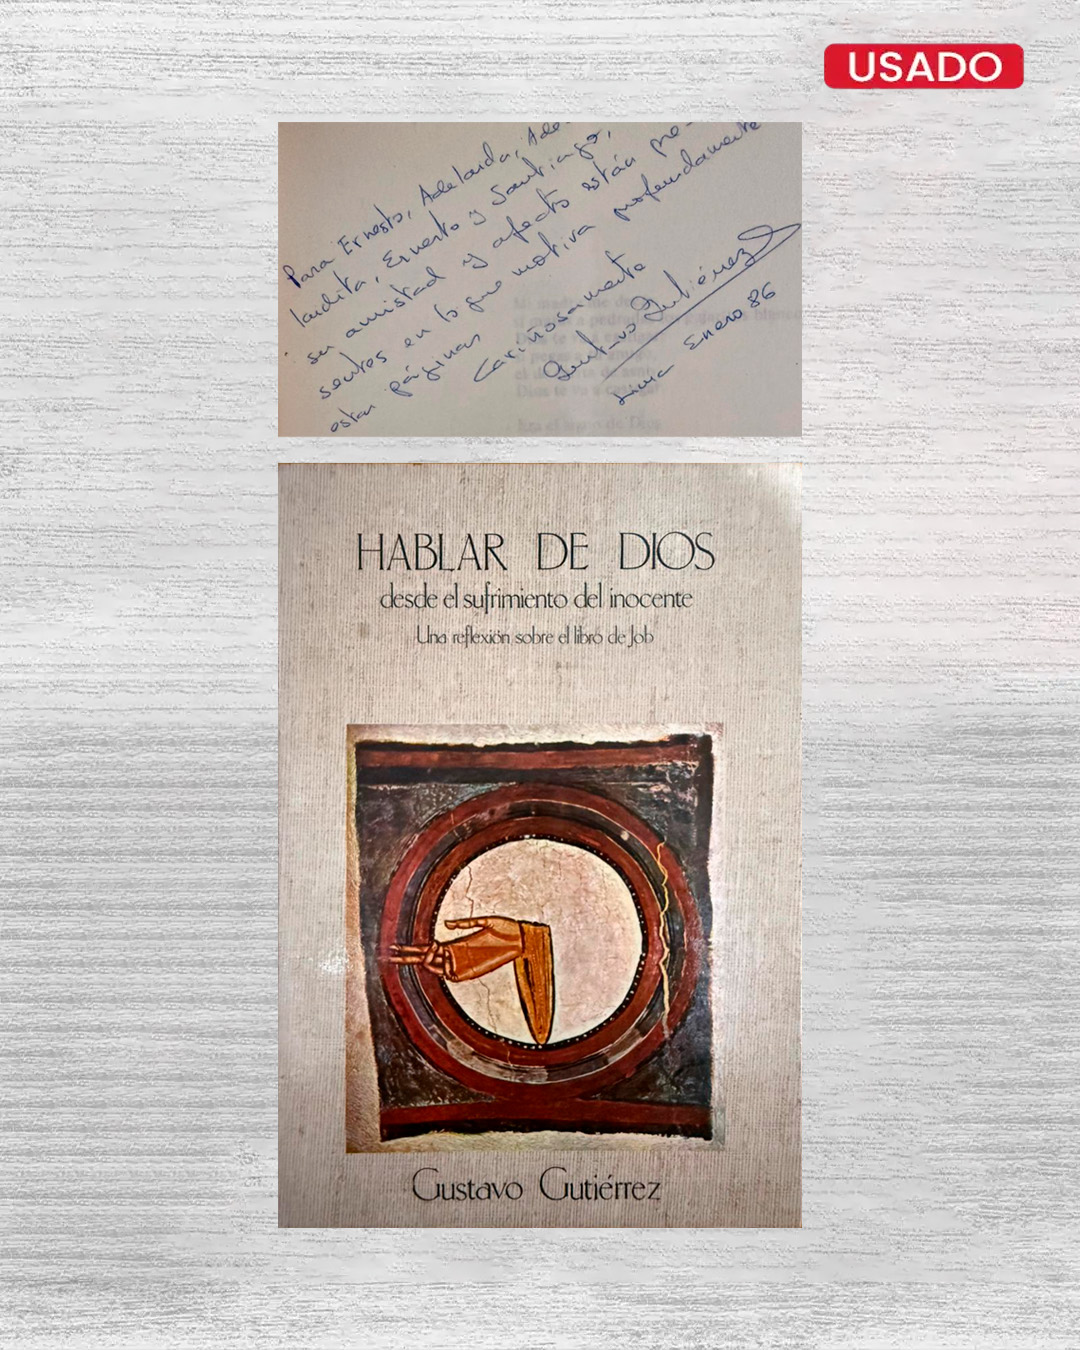 USADO
Para Ernesto, Adelaida, Ade-
laidita, Ernesto y Santiago,
su amistad y afecto están pre-
sentes en lo que motiva profundamente
estas páginas
Cariñosamente
Gustavo Gutiérrez
Lima Enero 86
HABLAR DE DIOS
desde el sufrimiento del inocente
Una reflexión sobre el libro de Job
Gustavo Gutiérrez